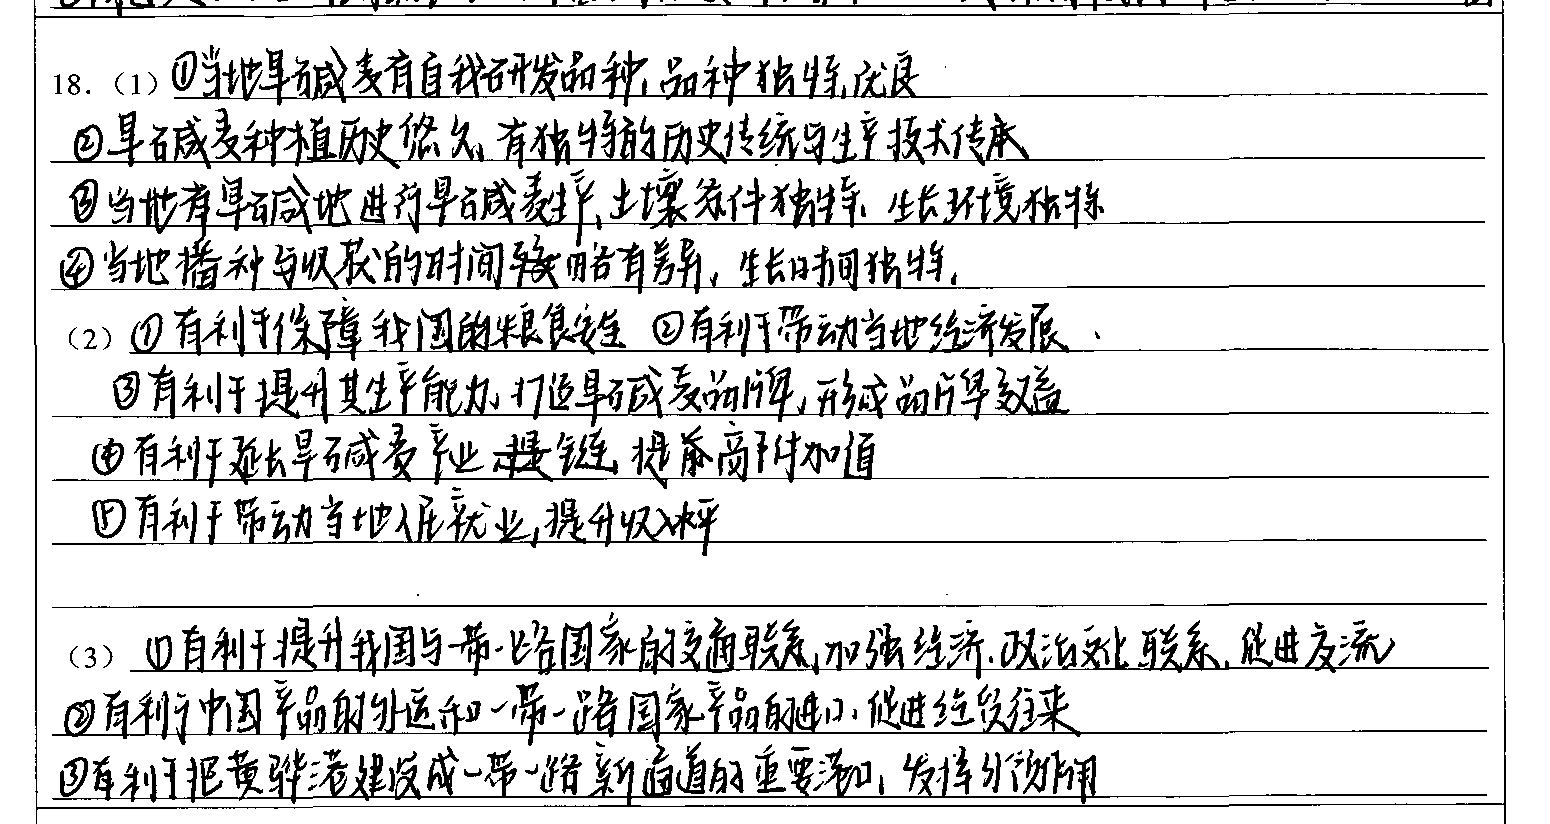 18.（1）①当地旱碱麦有自我研发品种,品种独特,优良
②旱碱麦种植历史悠久,有独特的历史传统与生产技术传承
③当地有旱碱地进行旱碱麦生产,土壤条件独特,生长环境独特
④当地播种与收获的时间略有差异,生长时间独特,
（2）①有利于保障我国的粮食安全 ②有利于带动当地经济发展、
③有利于提升其生产能力,打造旱碱麦品牌,形成品牌效益
④有利于延长旱碱麦产业链,提高附加值
⑤有利于带动当地人居就业,提升收入水平
（3）①有利于提升我国与一带一路国家的交通联系,加强经济、政治文化联系,促进交流
②有利于中国产品的外运和一带一路国家产品的进口,促进经贸往来
③有利于把黄骅港建设成一带一路新通道的重要港口,发挥作用